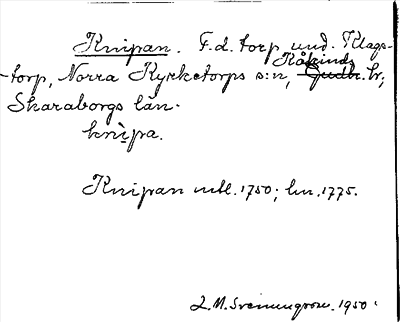 Knipan. F.d. torp und. Klags-
torp, Norra Kyrketorps s:n, Kåkinds hr,
Skaraborgs län.
knipa.
Knipan mtl. 1750; hn. 1775.
L.M. 1950.